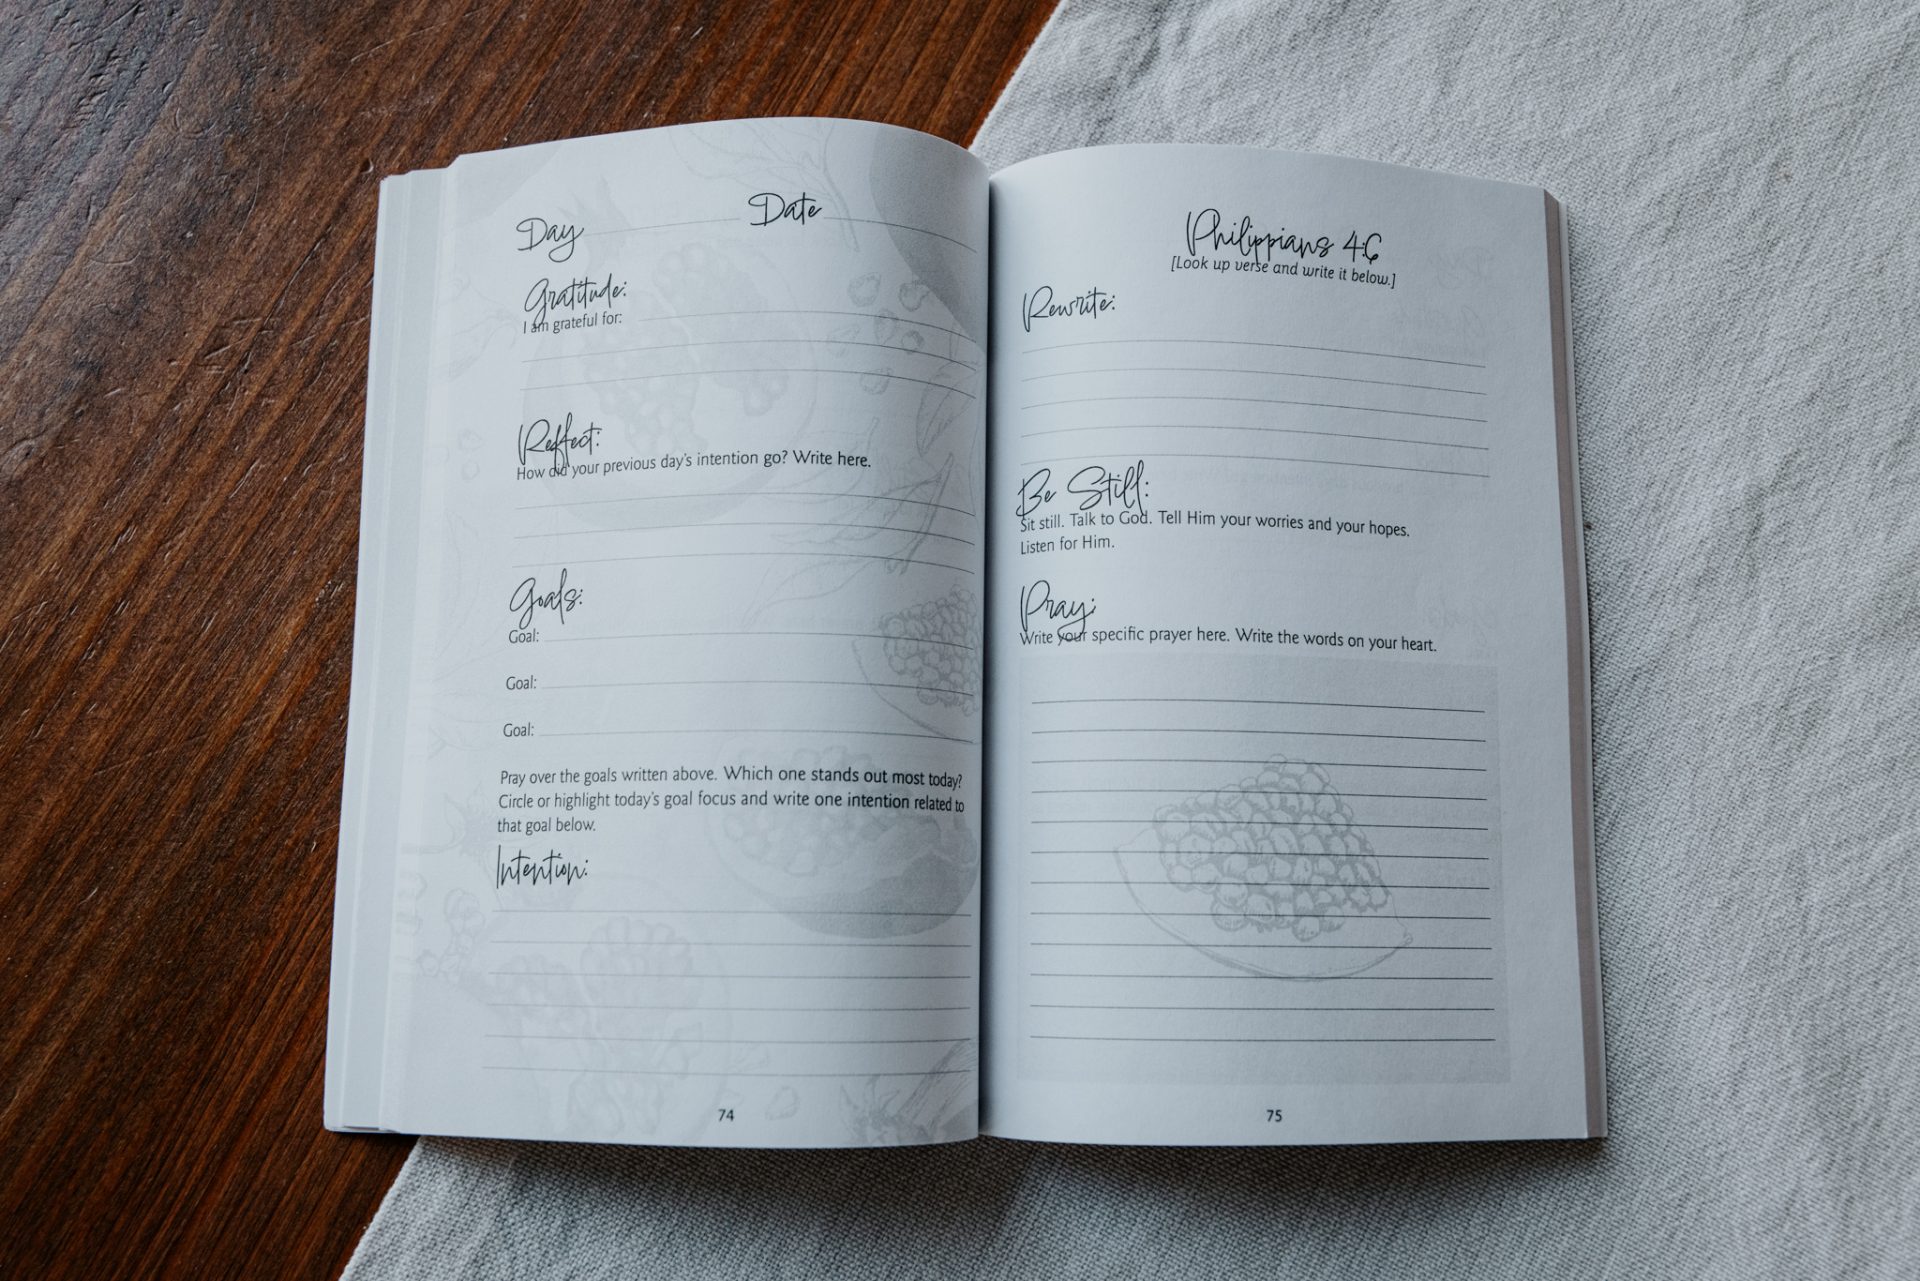 Day Date
Gratitude:
I am grateful for:
Reflect:
How did your previous day's intention go? Write here.
Goals:
Goal:
Goal:
Goal:
Pray over the goals written above. Which one stands out most today?
Circle or highlight today's goal focus and write one intention related to
that goal below.
Intention:
74
Philippians 4:6
[Look up verse and write it below.]
Rewrite:
Be Still:
Sit still. Talk to God. Tell Him your worries and your hopes.
Listen for Him.
Pray:
Write your specific prayer here. Write the words on your heart.
75